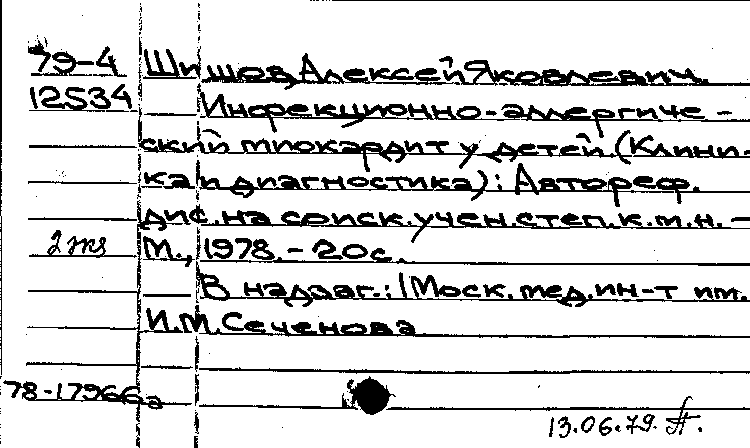 79-4 Шишов, Алексей Яковлевич.
12534 Инфекционно-аллергиче-
ский миокардит у детей. (Клини-
ка и диагностика): Автореф.
дис. на соиск. учен. степ. к.м.н. -
2 экз М., 1978. - 20 с.
В надзаг.: 1 Моск. мед. ин-т им.
И.М. Сеченова
78-17966а
13.06.79.